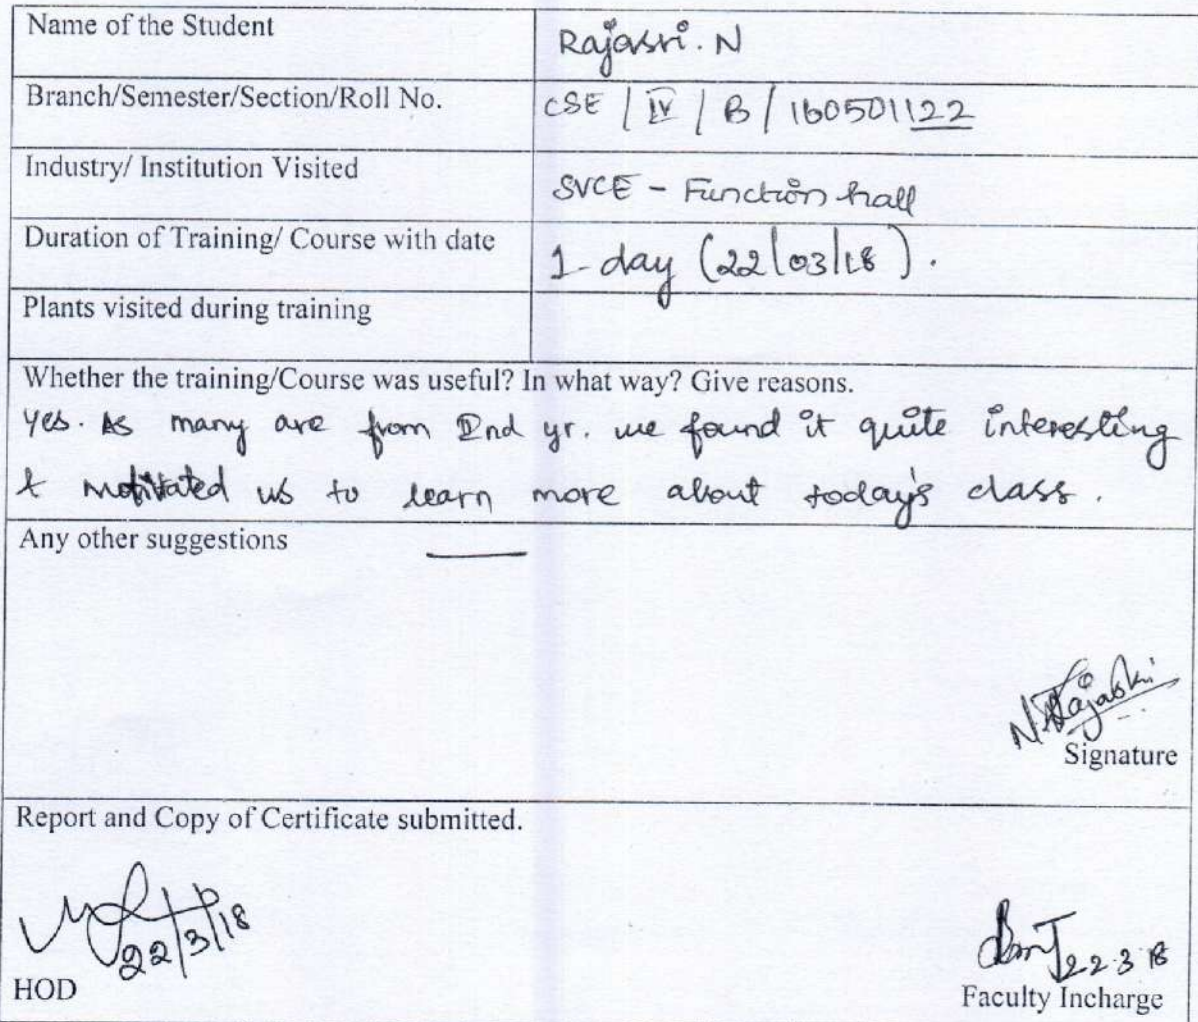 Name of the Student Rajasri. N
Branch/Semester/Section/Roll No. CSE / IV / B / 160501122
Industry/ Institution Visited SVCE - Function hall
Duration of Training/ Course with date 1 day (22/03/18).
Plants visited during training
Whether the training/Course was useful? In what way? Give reasons.
Yes. As many are from IInd yr. we found it quite interesting
& motivated us to learn more about today's class.
Any other suggestions —
N. Rajasri
Signature
Report and Copy of Certificate submitted.
22/3/18
22.3.18
HOD Faculty Incharge